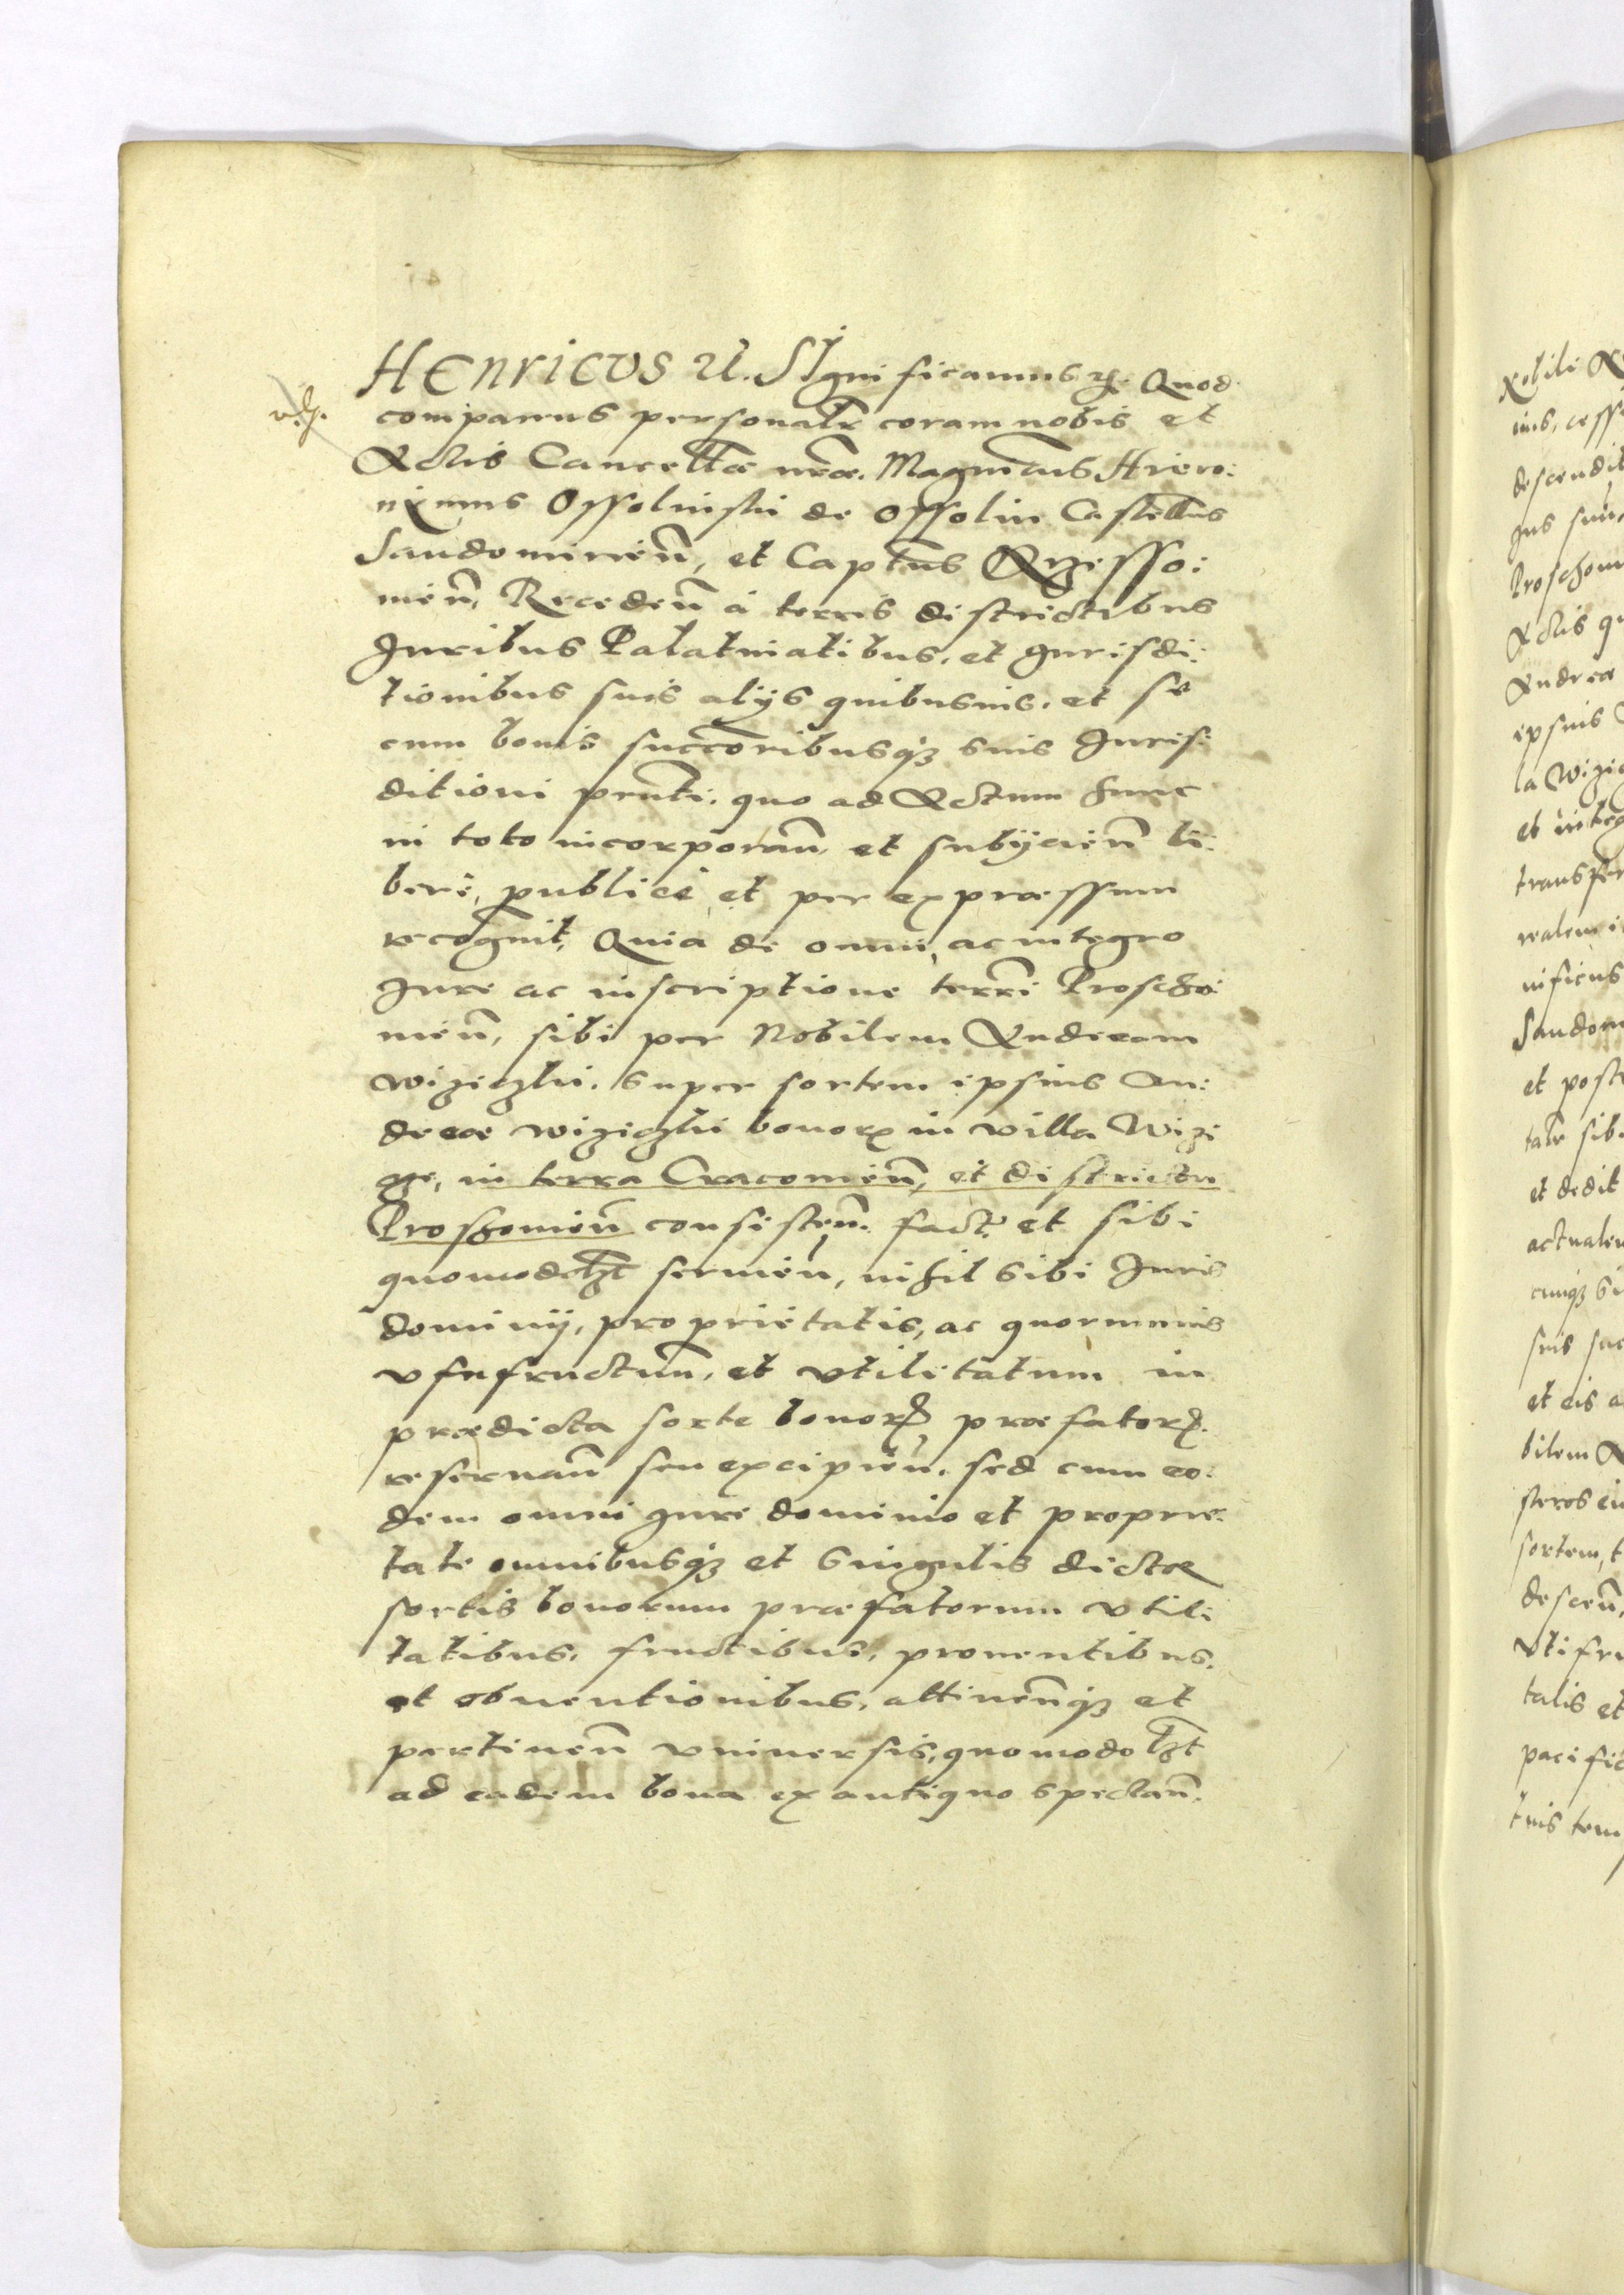 HENRICVS Vl. SIgnificamus ꝛc. Quod
comparens personalr coram nobis et
Actis Cancellæ nræ. Magnicus Hiero:
nÿmus Ossolinski de Ossolin Castellus
Sandomirień, et Captus Krzesso:
uień, Recedeń à terris districtibus
Juribus Palatinatibus, et Jurisdi:
tionibus suis alijs quibusuis, et se
cum bonis succoribusqꝫ suis Juris:
ditioni prnti. quo ad Actum hunc
in toto incorporań, et subijcień li:
berè, publicè, et per expræssum
recognit, Quia de omni, ac integro
Jure ac inscriptione terri Proscho:
uień, sibi per Nobilem Andream
Wiziczki. super sortem ipsius An:
dreæ Wiziczki bonorꝝ in villa Wizi
cze, in terra Cracouień, et districtu
Proshouień consisteń. fact. et sibi
quomodolzt seruień, nihil sibi Juris
dominij, proprietatis, ac quorumuis
vsufructuum, et vtilitatum in
prædicta sorte bonorꝝ, præfatorꝝ.
reseruań seu excipień. sed cum eo:
dem omni Jure dominio et proprie:
tate omnibusqꝫ et singulis dictæ
sortis bonorum præfatorum vtili
tatibus, fructibus, prouentibus,
et obuentionibus, attineńqꝫ et
pertineń vniuersis, quomodolzt
ad eadem bona ex antiquo spectań.
Nobili
ius, cess
descendit
Proschou
Actis qu
Andreæ
ipsius
la Wizic
et integ
transfer
realem i
nificus
Sandom
et poste
talr sib
et dedit
actualem
cunqꝫ si
suis suc
et eis a
bilem A
steros eiu
sortem, t
desceń,
vti fru
talis et
pacific
tuis tem